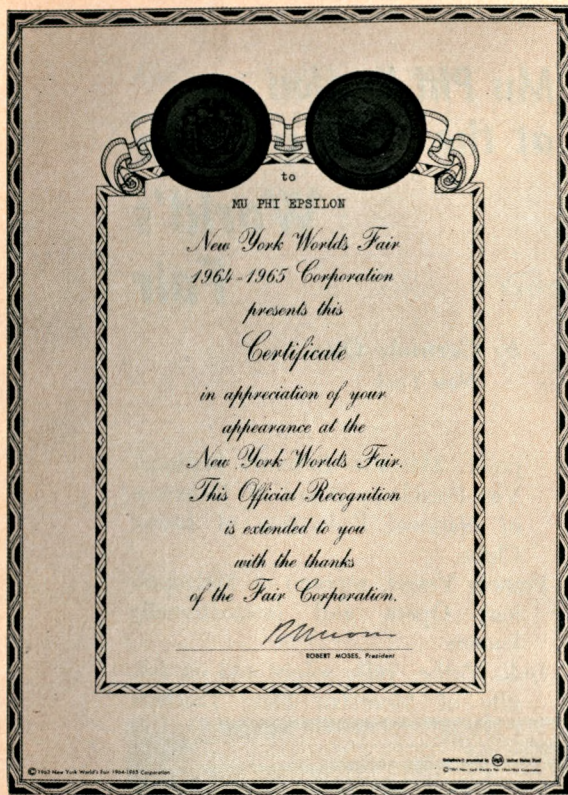 to
MU PHI EPSILON
New York World's Fair
1964-1965 Corporation
presents this
Certificate
in appreciation of your
appearance at the
New York World's Fair.
This Official Recognition
is extended to you
with the thanks
of the Fair Corporation.
ROBERT MOSES, President
© 1963 New York World's Fair 1964-1965 Corporation
presented by USS United States Steel
© 1961 New York World's Fair 1964-1965 Corporation